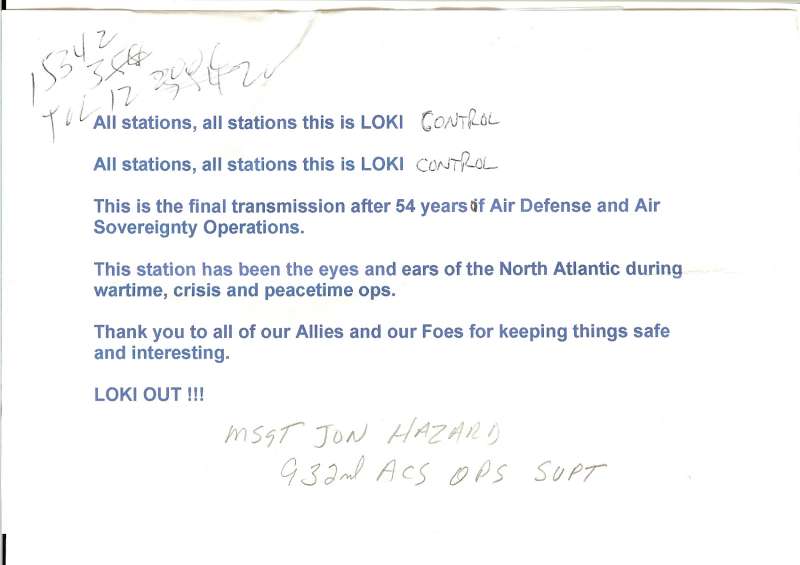 15342
JUL 12 2006
All stations, all stations this is LOKI CONTROL
All stations, all stations this is LOKI CONTROL
This is the final transmission after 54 years of Air Defense and Air
Sovereignty Operations.
This station has been the eyes and ears of the North Atlantic during
wartime, crisis and peacetime ops.
Thank you to all of our Allies and our Foes for keeping things safe
and interesting.
LOKI OUT !!!
MSGT JON HAZARD
932nd ACS OPS SUPT